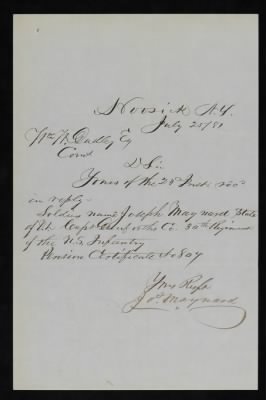 Hoosick N.Y.
July 25/81
Wm W. Dudley Esq
Comr
D Sir
Yours of the 23d Inst. rec'd
in reply-
Soldiers name Joseph Maynard State
of Vt. Capt. Co. 30th Regiment
of the U.S. Infantry
Pension Certificate
Yours Resp
Jos. Maynard